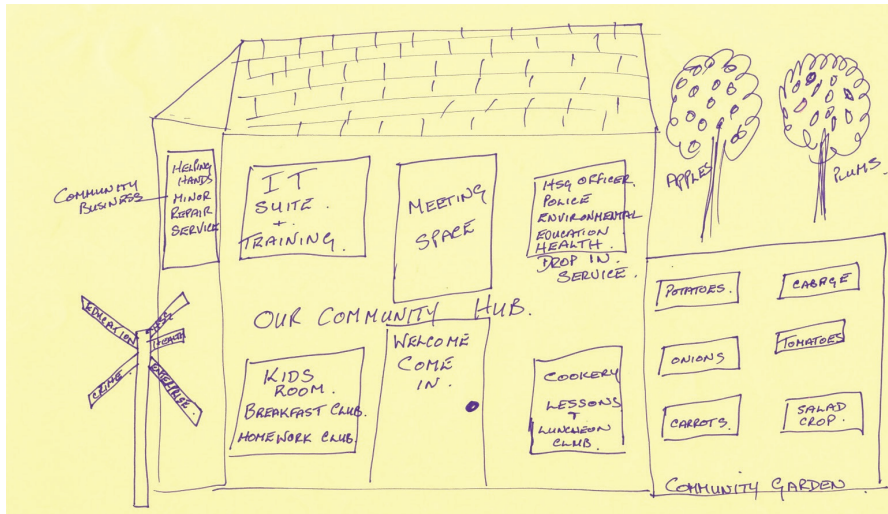 HELPING
HANDS
MINOR
REPAIR
SERVICE
COMMUNITY
BUSINESS
IT
SUITE.
+
TRAINING.
MEETING
SPACE
HSG OFFICER.
POLICE
ENVIRONMENTAL
EDUCATION
HEALTH.
DROP IN.
SERVICE.
APPLES
PLUMS.
OUR COMMUNITY HUB.
EDUCATION
HEALTH
CRIME
ENTERPRISE.
KIDS
ROOM.
BREAKFAST CLUB.
HOMEWORK CLUB.
WELCOME
COME
IN.
COOKERY
LESSONS
+
LUNCHEON
CLUB.
POTATOES.
CABAGE
ONIONS
TOMATOES
CARROTS.
SALAD
CROP.
COMMUNITY GARDEN